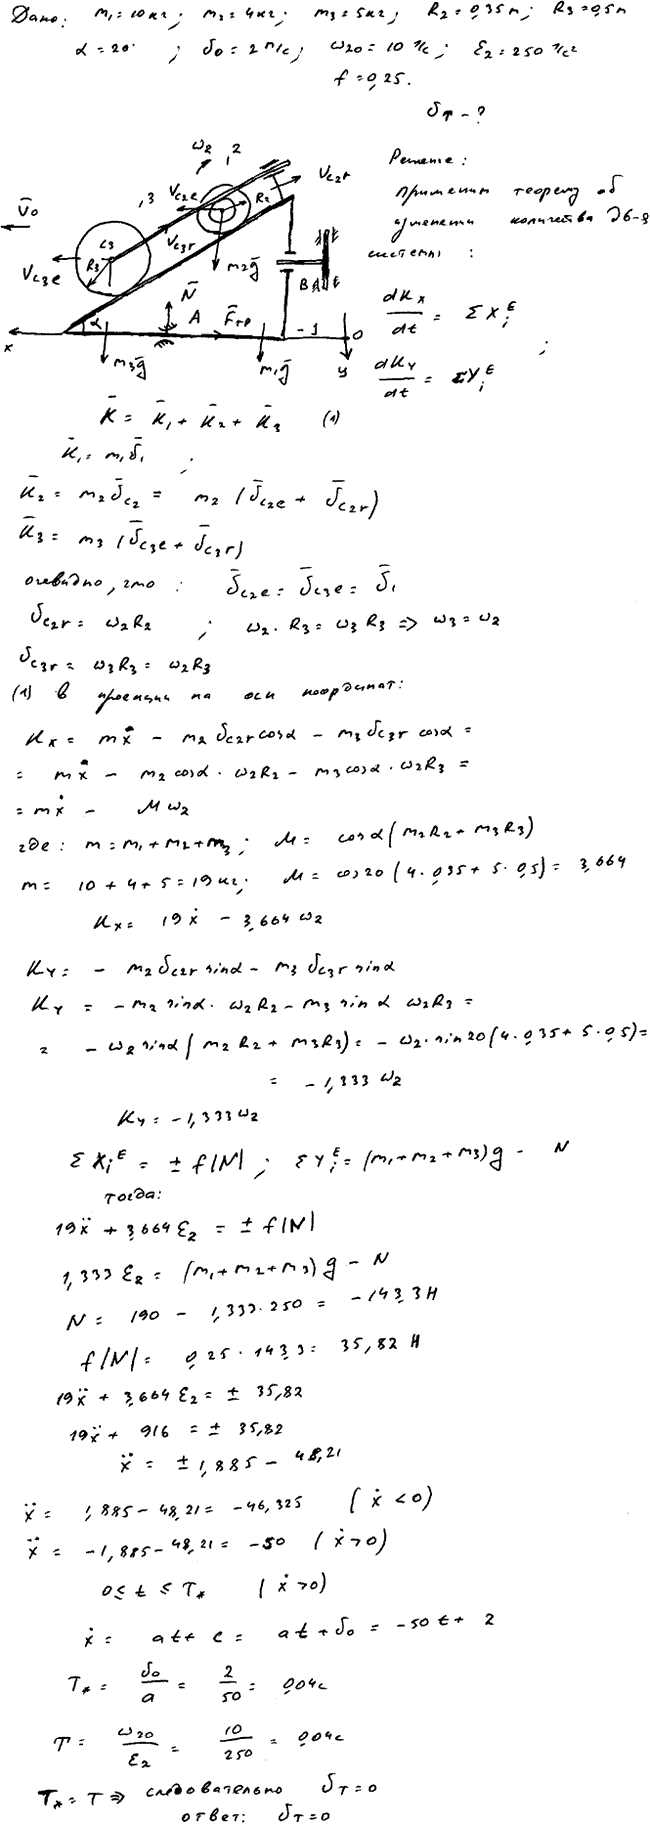 Дано: m₁=10кг; m₂=4кг; m₃=5кг; R₂=0,35м; R₃=0,5м
α=20°; υ₀=2м/с; ω₂₀=10 1/с; ε₂=250 1/с²
f=0,25.
υT - ?
Решение:
применим теорему об
изменении количества дв-я
системы:
dKx/dt = ΣXᵢᴱ ;
dKy/dt = ΣYᵢᴱ
ω₂ , 2
V̄₀ , 3 VC2e R₂ VC2r
C₃ R₃ VC3r VC3e m₂ḡ
N̄ A F̄тр B A E E
x α - 1 O
m₃ḡ m₁ḡ y
K̄ = K̄₁ + K̄₂ + K̄₃ (1)
K̄₁ = m₁ῡ₁ ;
K̄₂ = m₂ῡC2 = m₂ (ῡC2e + ῡC2r)
K̄₃ = m₃ (ῡC3e + ῡC3r)
очевидно, что: ῡC2e = ῡC3e = ῡ₁
υC2r = ω₂R₂ ; ω₂·R₃ = ω₃R₃ => ω₃ = ω₂
υC3r = ω₃R₃ = ω₂R₃
(1) в проекции на оси координат:
Kx = mẋ - m₂υC2r cosα - m₃υC3r cosα =
= mẋ - m₂cosα·ω₂R₂ - m₃cosα·ω₂R₃ =
= mẋ - Mω₂
где: m=m₁+m₂+m₃; M = cosα(m₂R₂+m₃R₃)
m = 10+4+5=19кг; M = cos20(4·0,35+5·0,5) = 3,664
Kx = 19ẋ - 3,664ω₂
Ky = - m₂υC2r sinα - m₃υC3r sinα
Ky = -m₂ sinα·ω₂R₂ - m₃ sinα ω₂R₃ =
= -ω₂ sinα(m₂R₂+m₃R₃) = -ω₂·sin20(4·0,35+5·0,5) =
= -1,333ω₂
Ky = -1,333ω₂
ΣXᵢᴱ = ±f|N| ; ΣYᵢᴱ = (m₁+m₂+m₃)g - N
тогда:
19ẍ + 3,664ε₂ = ±f|N|
1,333ε₂ = (m₁+m₂+m₃)g - N
N = 190 - 1,333·250 = -143,3Н
f|N| = 0,25·143,3 = 35,82 Н
19ẍ + 3,664ε₂ = ±35,82
19ẍ + 916 = ±35,82
ẍ = ±1,885 - 48,21
ẍ = 1,885 - 48,21 = -46,325 (ẋ<0)
ẍ = -1,885 - 48,21 = -50 (ẋ>0)
0≤t≤T* (ẋ>0)
ẋ = at + c = at + υ₀ = -50t + 2
T* = υ₀/a = 2/50 = 0,04с
T = ω₂₀/ε₂ = 10/250 = 0,04с
T* = T => следовательно υT=0
ответ: υT=0